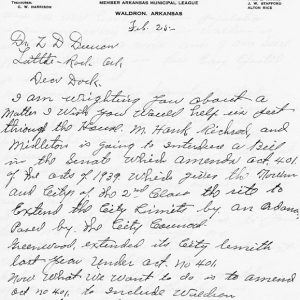 MEMBER ARKANSAS MUNICIPAL LEAGUE
TREASURER
C. W. HARRISON
J. W. STAFFORD
ALTON RICE
WALDRON, ARKANSAS
Feb. 25-
Dr. L D Duncan
Little-Rock Ark
Dear Dock.
I am wrighting you about a
Matter I wish you would help us get
through the House. M. Hank Richrod, and
Milliton is going to Intriduce a Bill
in the Senate Which amends act. 401
of the acts of 1939 Which gives the Towns
and Citys of the 2nd Class the rite to
Extend the City Limits by an
Passed by. The City Councel
Greenwood, extended its City Limits
last year under act. no 401.
Now What We want to do is to amend
act no 401. to Include Waldron